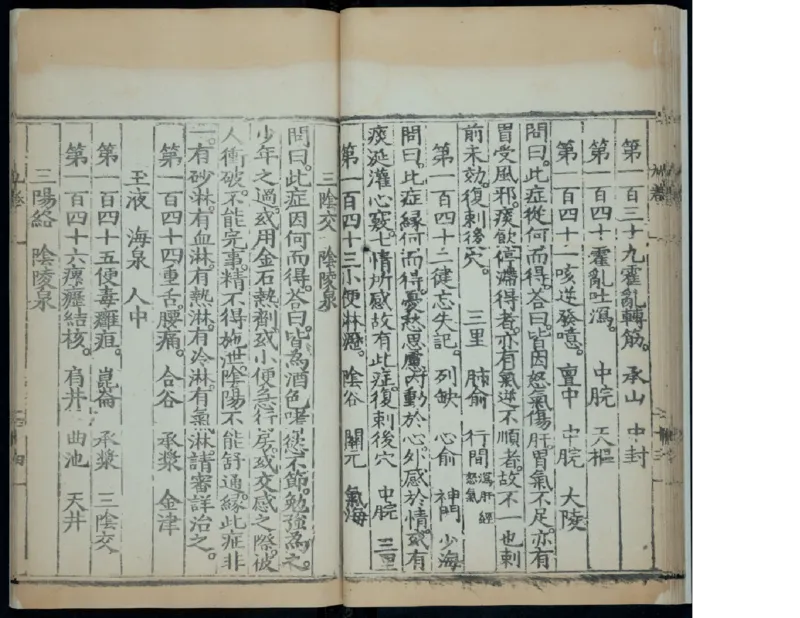 第一百三十九霍亂轉筋。 承山 中封
第一百四十霍亂吐瀉。 中脘 天樞
第一百四十一咳逆發噫。 膻中 中脘 大陵
問曰。此症從何而得。答曰。皆因怒氣傷肝。胃氣不足。亦有
胃受風邪。痰飲停滯得者。亦有氣逆不順者。故不一也刺
前未効。復刺後穴。 三里 肺俞 行間 瀉肝經怒氣
第一百四十二健忘失記。 列缺 心俞 神門 少海
問曰。此症緣何而得。憂愁思慮內動於心。外感於情。或有
痰涎灌心竅。七情所感故有此症。復刺後穴 中脘 三里
第一百四十三小便淋瀝。 陰谷 關元 氣海
三陰交 陰陵泉
問曰。此症因何而得。答曰。皆為酒色嗜慾不節。勉強為之。
少年之過。或用金石熱劑。或小便急行房。或交感之際。被
人衝破。不能完事。精不得施泄。陰陽不能舒通。緣此症非
一。有砂淋。有血淋。有熱淋。有冷淋。有氣淋。請審詳治之。
第一百四十四重舌腰痛。 合谷 承漿 金津
玉液 海泉 人中
第一百四十五便毒癰疽。 崑崙 承漿 三陰交
第一百四十六瘰癧結核。 肩井 曲池 天井
三陽絡 陰陵泉